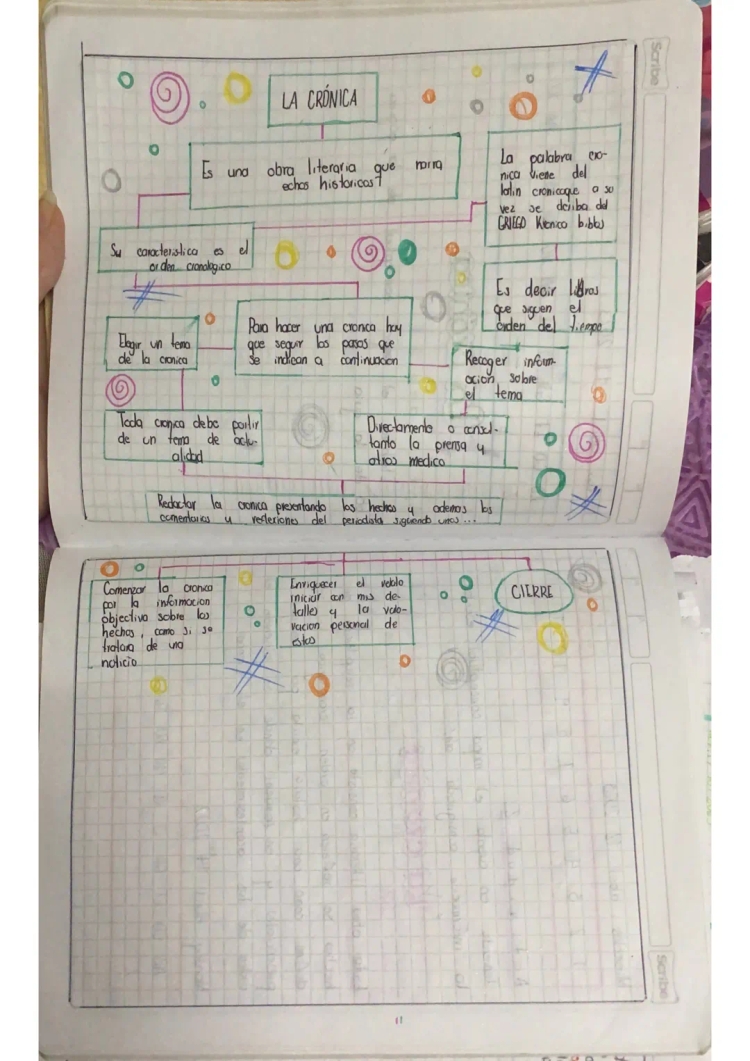 LA CRÓNICA
Es una obra literaria que narra
echos historicos
La palabra cro-
nica viene del
latin cronicaque a su
vez se deriba del
GRIEGO Kronico biblos
Su caracteristica es el
orden cronologico
Es decir libros
que siguen el
orden del tiempo
Elegir un tema
de la cronica
Para hacer una cronca hay
que seguir los pasos que
se indican a continuacion
Recoger inform-
acion sobre
el tema
Toda cronica debe partir
de un tema de actu-
alidad
Directamente o consul-
tanto la prensa y
otros medico
Redactar la cronica presentando los hechos y ademas los
comentarios y reflexiones del periodista siguiendo unos...
Comenzar la cronca
por la informacion
objectiva sobre los
hechos, como si se
tratara de una
noticia
Enriquecer el
iniciar con mis de-
talles y la valo-
racion personal de
estos
CIERRE
Scribe
Scribe
11